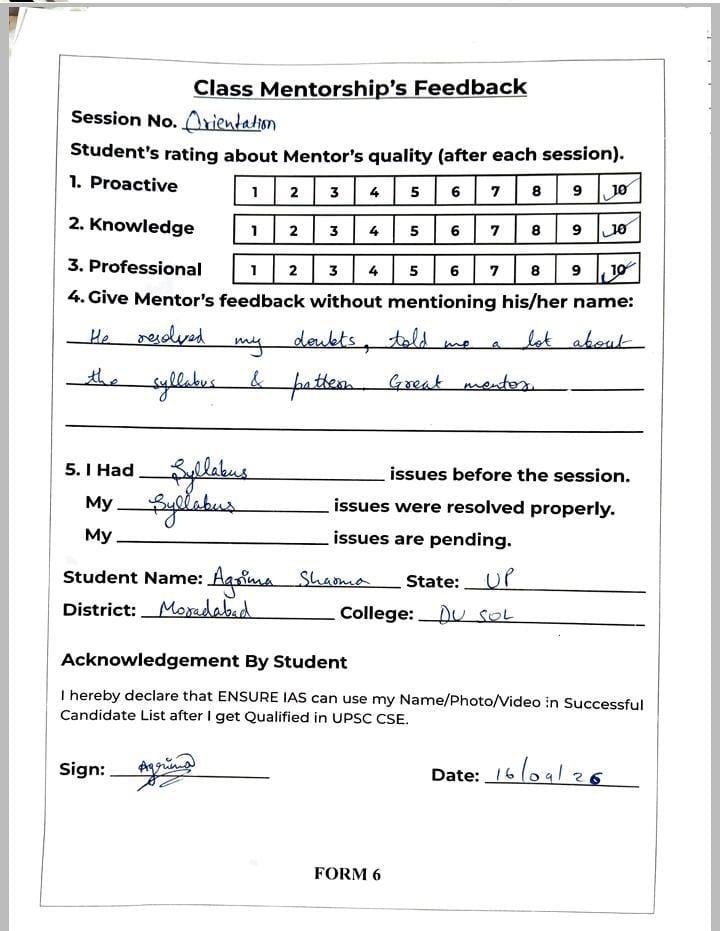 Class Mentorship's Feedback
Session No. Orientation
Student's rating about Mentor's quality (after each session).
1. Proactive 1 2 3 4 5 6 7 8 9 10
2. Knowledge 1 2 3 4 5 6 7 8 9 10
3. Professional 1 2 3 4 5 6 7 8 9 10
4. Give Mentor's feedback without mentioning his/her name:
He resolved my doubts, told me a lot about
the syllabus & pattern. Great mentor.
5. I Had Syllabus issues before the session.
My Syllabus issues were resolved properly.
My issues are pending.
Student Name: Agrima Sharma State: UP
District: Moradabad College: DU SOL
Acknowledgement By Student
I hereby declare that ENSURE IAS can use my Name/Photo/Video in Successful
Candidate List after I get Qualified in UPSC CSE.
Sign: Agrima Date: 16/09/26
FORM 6